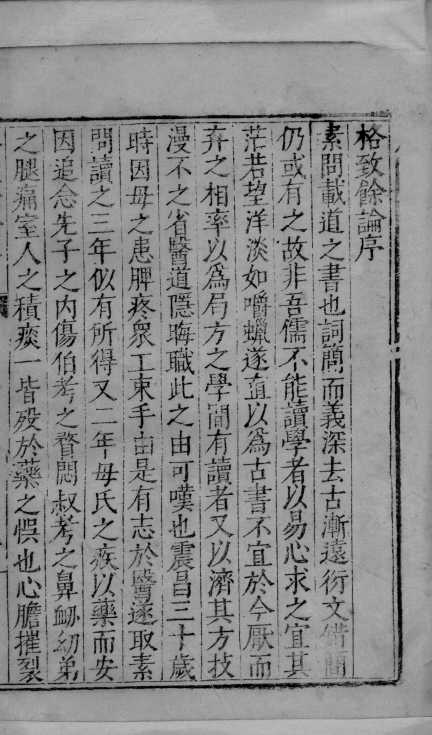 格致餘論序
素問載道之書也詞簡而義深去古漸遠衍文錯簡
仍或有之故非吾儒不能讀學者以易心求之宜其
茫若望洋淡如嚼蠟遂直以為古書不宜於今厭而
弃之相率以爲局方之學間有讀者又以濟其方技
漫不之省醫道隱晦職此之由可嘆也震昌三十歲
時因母之患脾疼衆工束手由是有志於醫遂取素
問讀之三年似有所得又二年母氏之疾以藥而安
因追念先子之内傷伯考之瞀悶叔考之鼻衄幼弟
之腿痛室人之積痰一皆殁於藥之悞也心膽摧裂